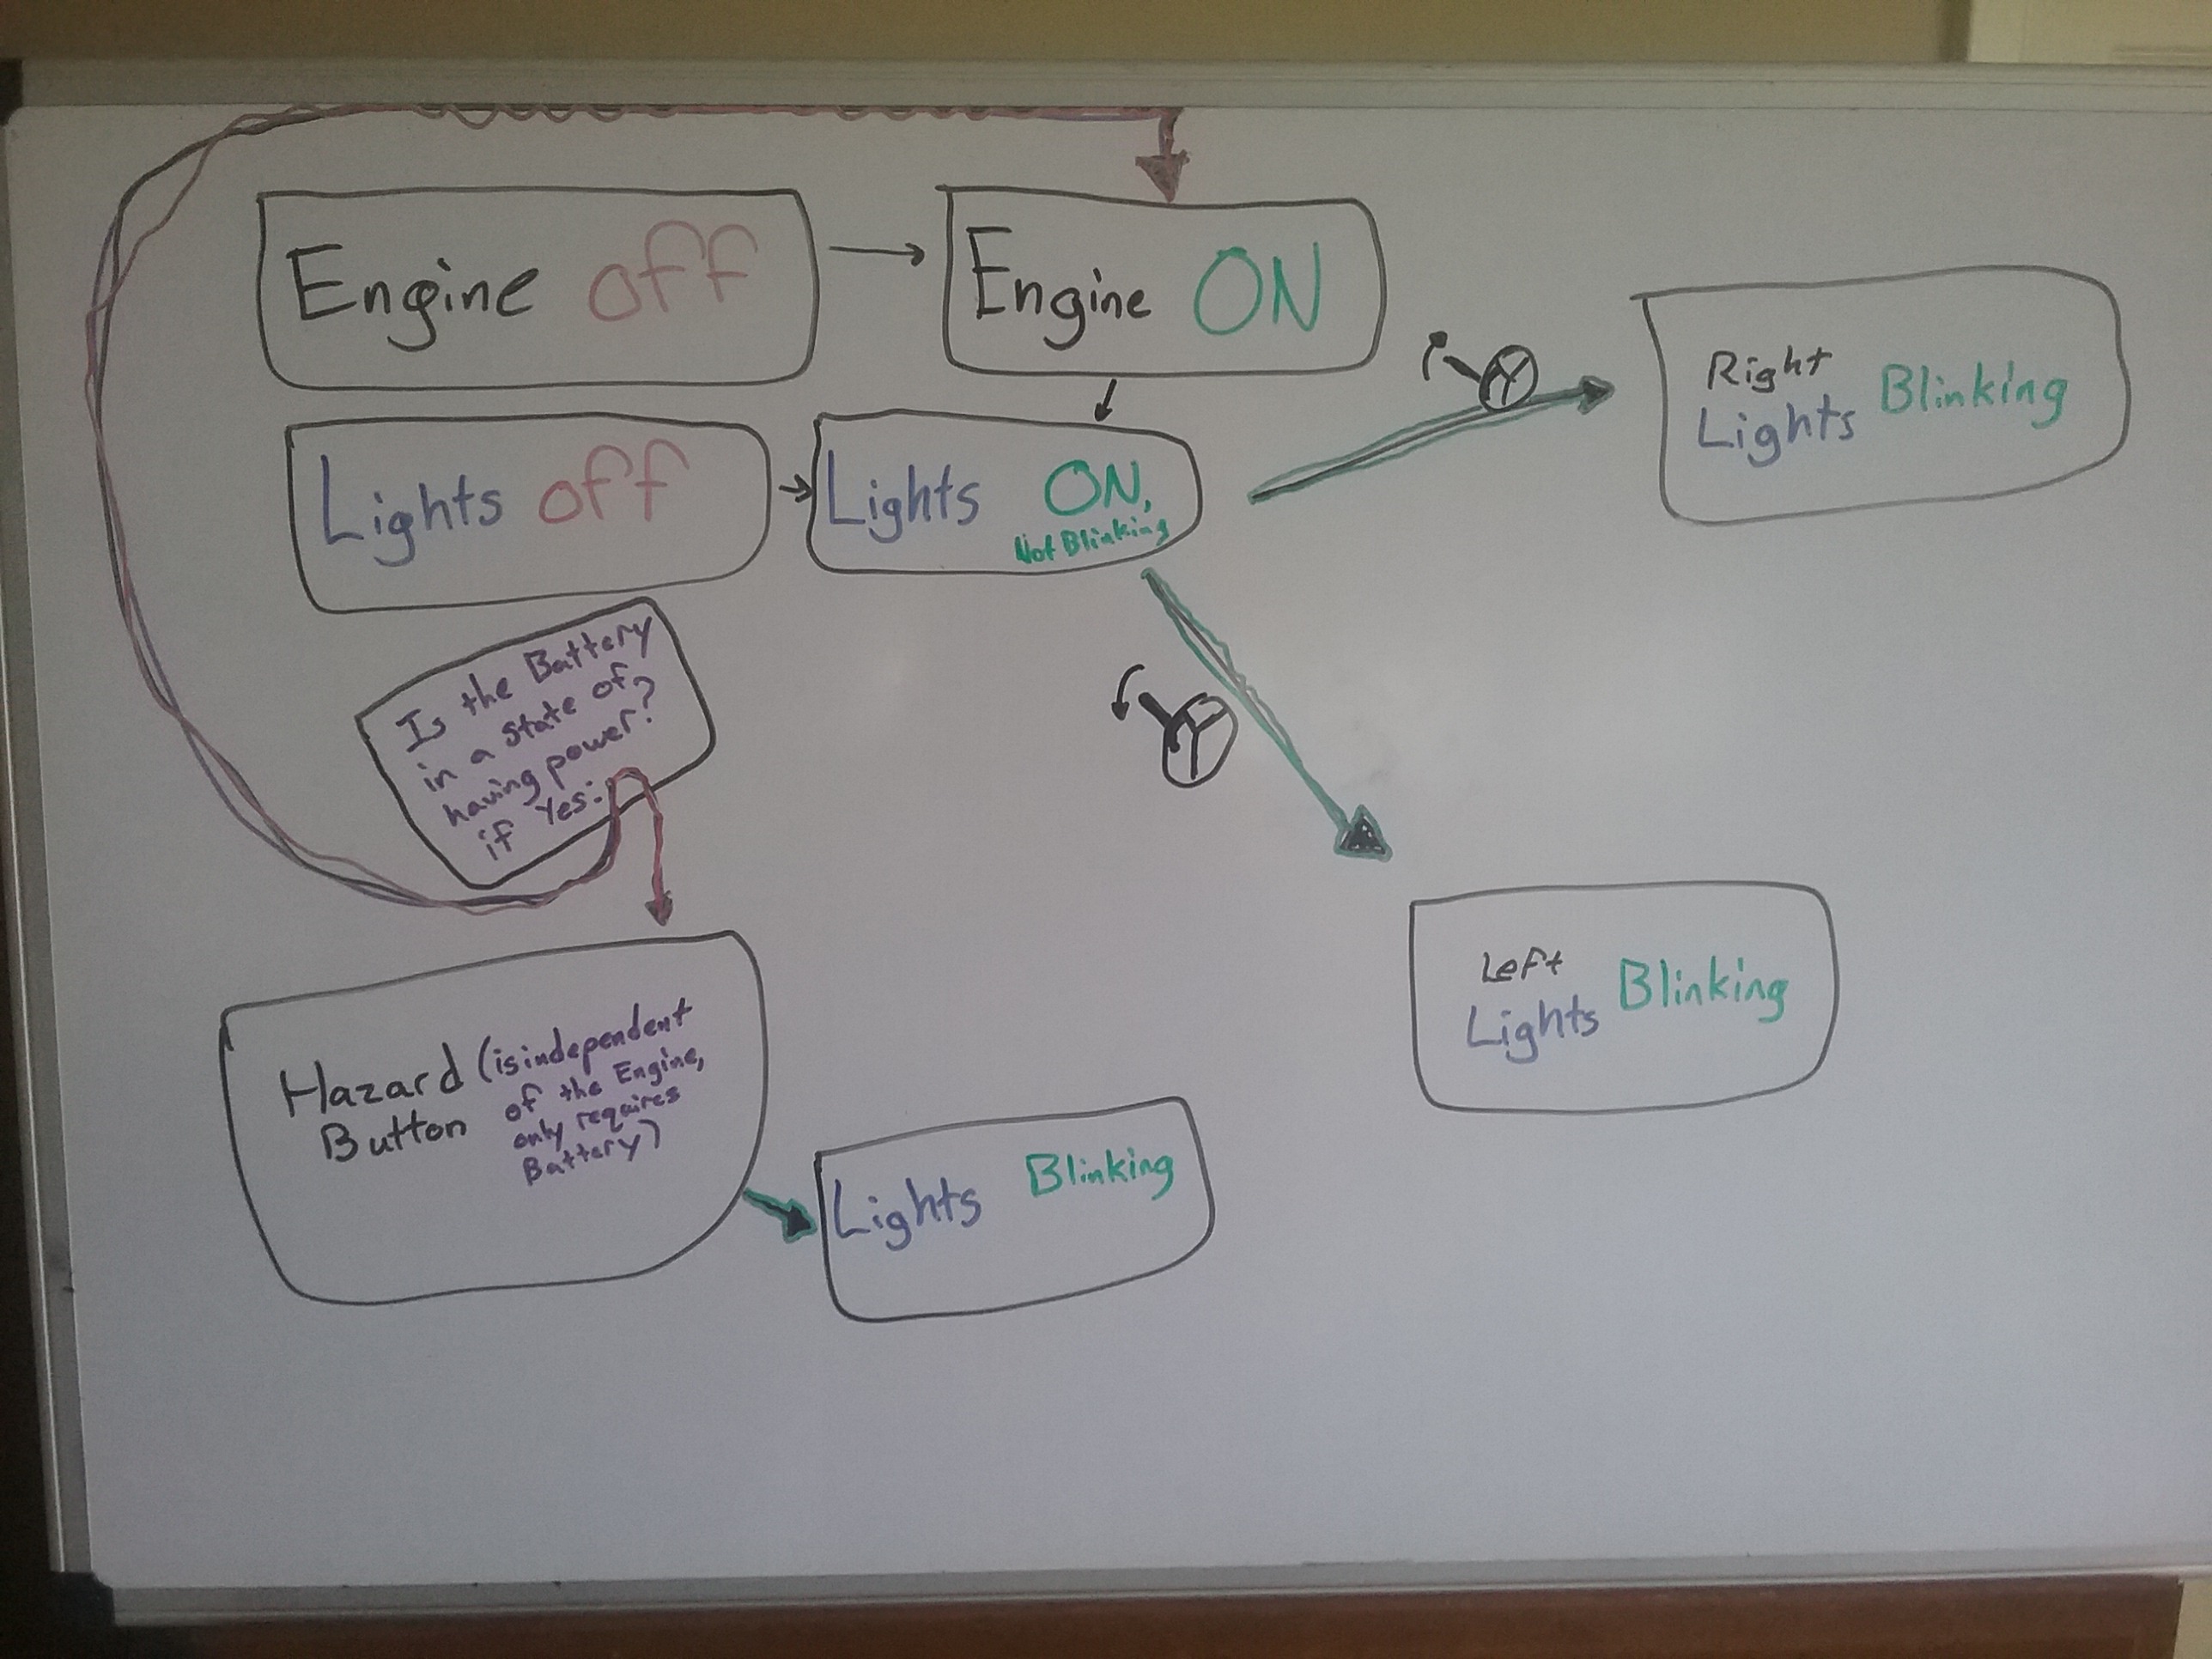 Engine off
Engine ON
Lights off
Lights ON,
Not Blinking
Right
Lights Blinking
Is the Battery
in a state of
having power?
if Yes:
Left
Lights Blinking
Hazard (is independent
Button of the Engine,
only requires
Battery)
Lights Blinking